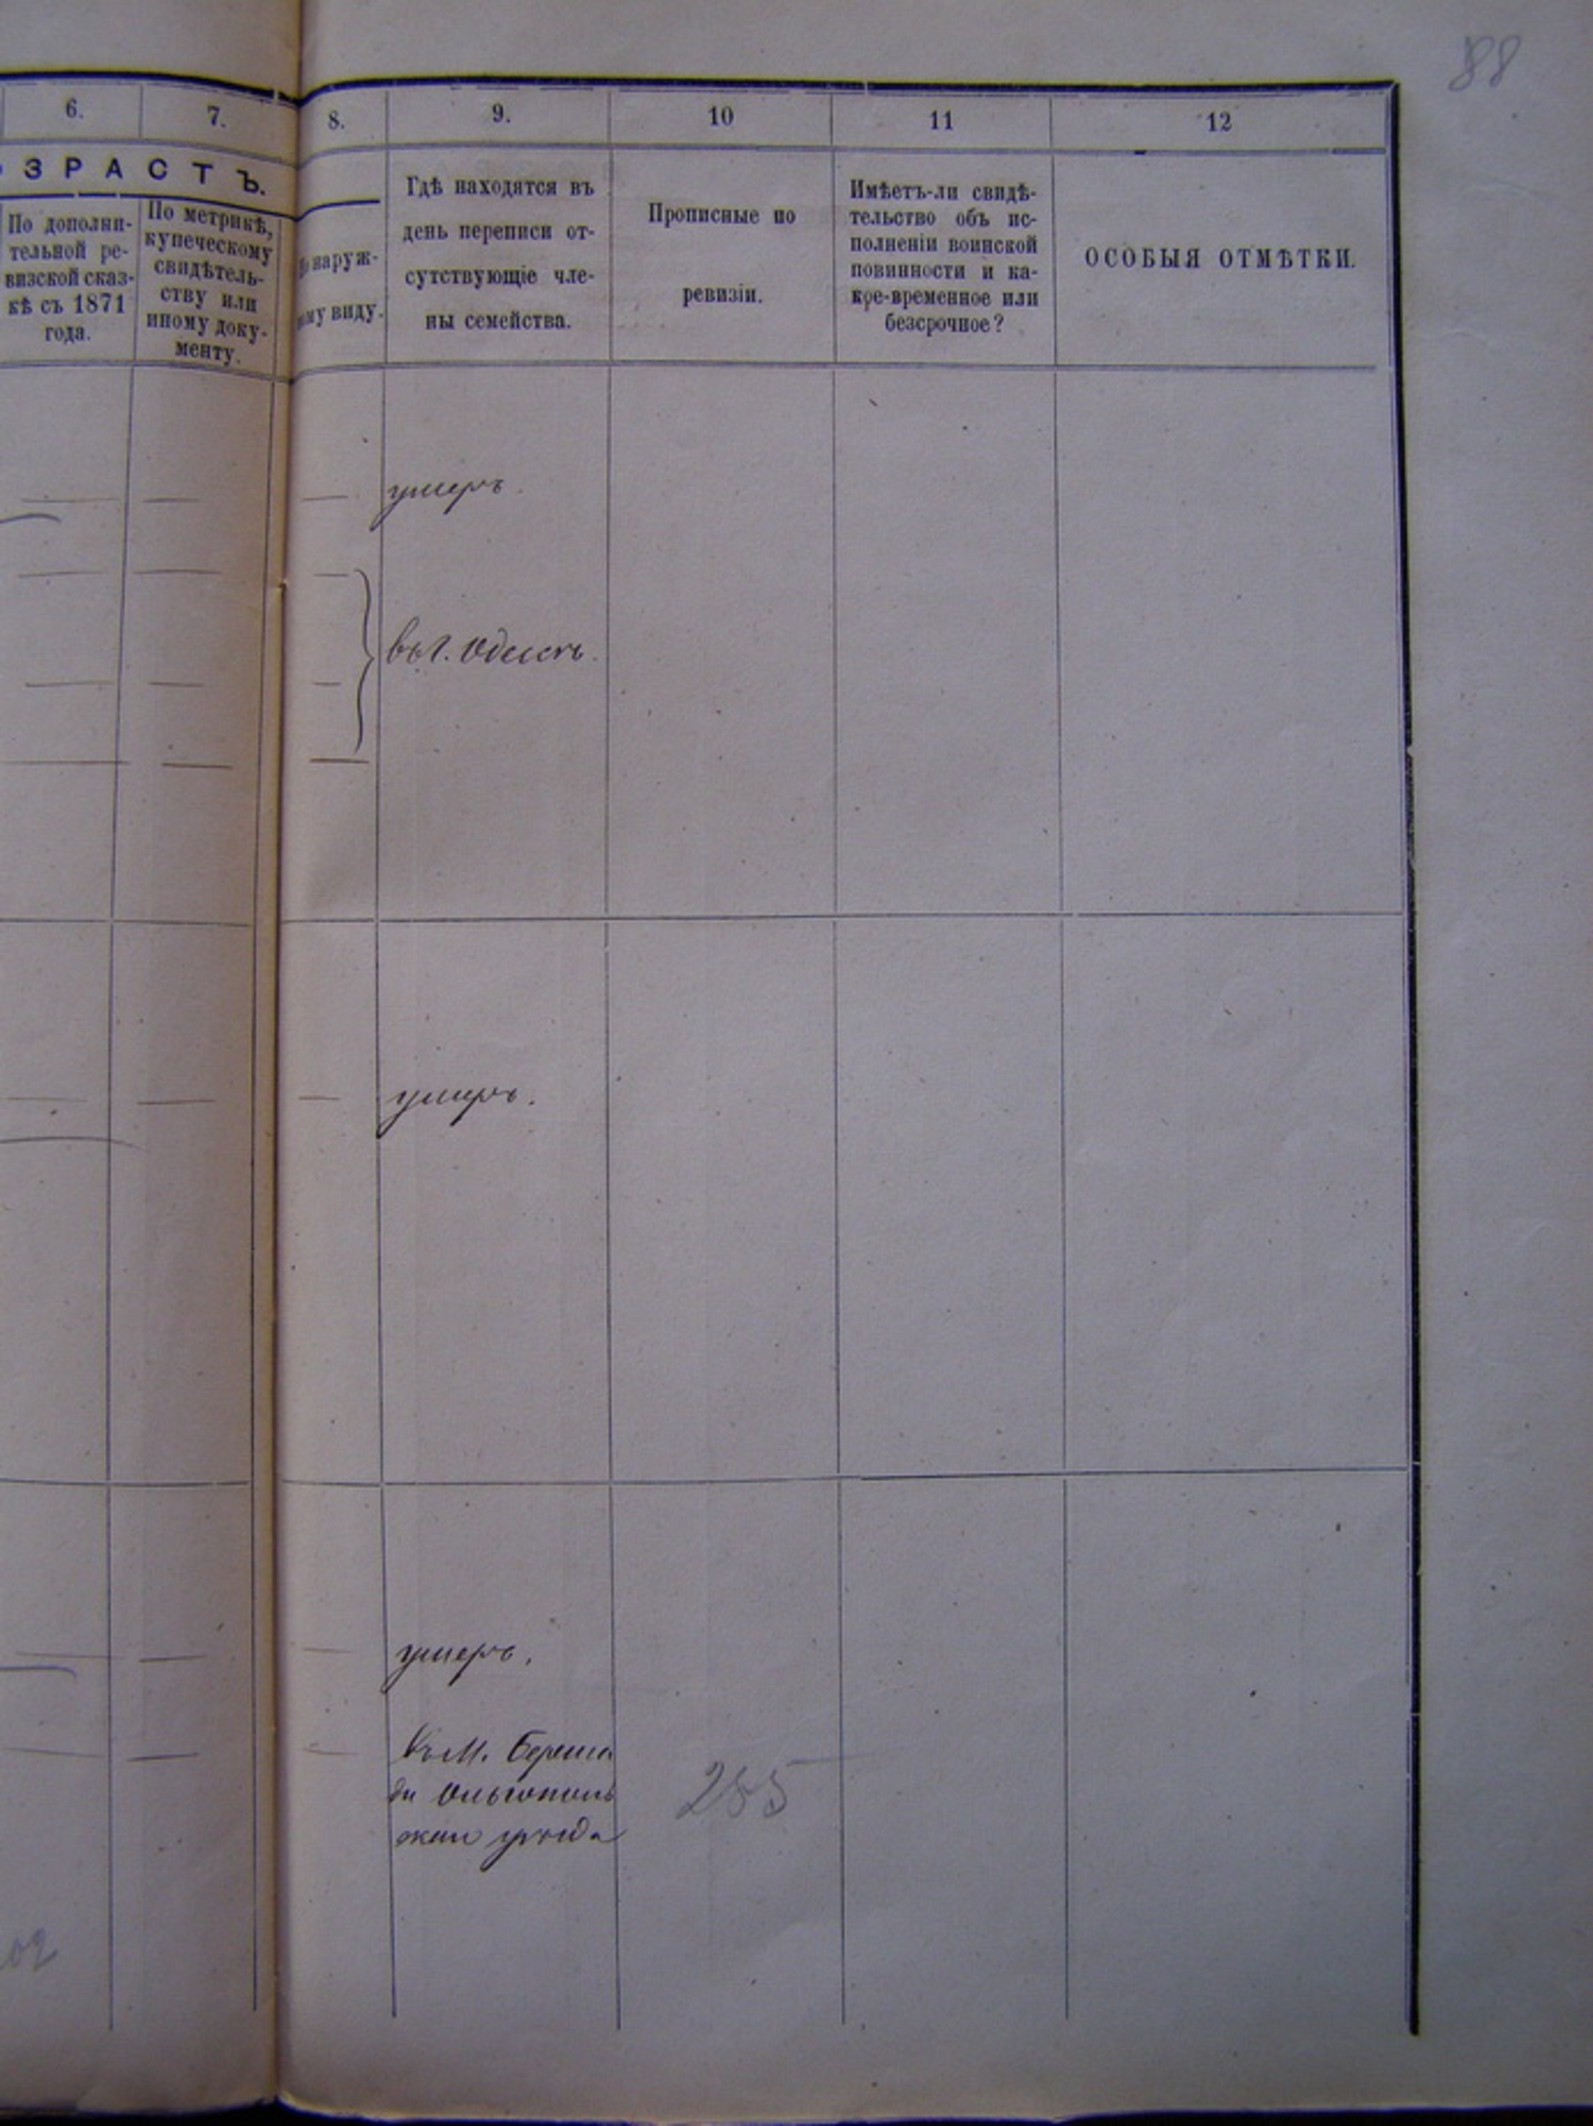 88
6.
7.
8.
9.
10
11
12
ЗРАСТЪ.
По дополни-
тельной ре-
визской сказ-
кѣ съ 1871
года.
По метрикѣ,
купеческому
свидѣтель-
ству или
иному доку-
менту.
наруж-
ому виду.
Гдѣ находятся въ
день переписи от-
сутствующіе чле-
ны семейства.
Прописные по
ревизіи.
Имѣетъ-ли свидѣ-
тельство объ ис-
полненіи воинской
повинности и ка-
кое-временное или
безсрочное?
ОСОБЫЯ ОТМѢТКИ.
умеръ.
въ г. Одессѣ.
умеръ.
умеръ.
Въ м. Берша
ди Ольгополь
скаго уѣзда
285